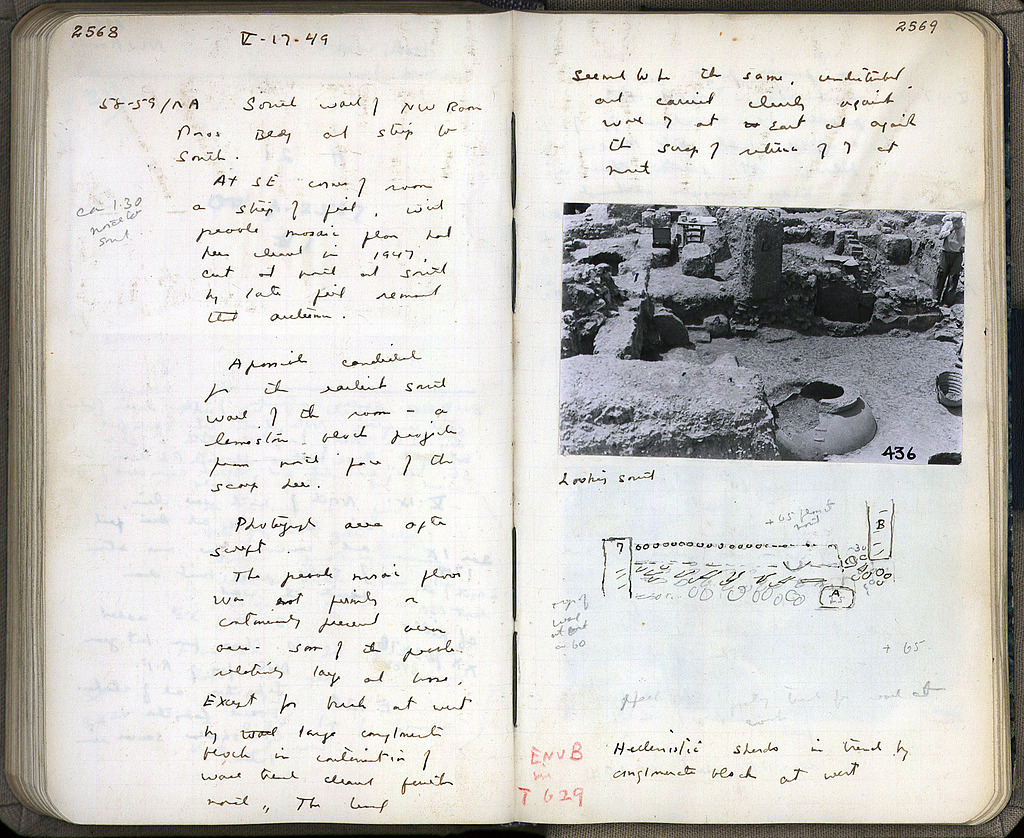 2568
V-17-49
58-59/ΛA South wall of NW Room
Poros Bldg and strip to
South.
At SE corner of room
a strip of fill, with
pebble mosaic floor had
been cleared in 1947,
cut at north and south
by late fill
ca 1.30
north to
south
A possible candidate
for the earliest south
wall of the room – a
limestone block projects
from north face of the
scarp here.
Photograph area after
scraped.
The pebble mosaic floor
was not
continuously present over
area. Some of the pebbles
relatively large and loose.
Except for trench at west
by large conglomerate
block in continuation of
wall trench cleared further
north, The
2569
seemed to be the same, undisturbed
and carried clearly against
wall 7 at East and against
the scrap of of 7 at
north
436
Looking south
+65
north
7
B
A
+ 65
at
ENVB
in
T 629
Hellenistic sherds in trench by
conglomerate block at west